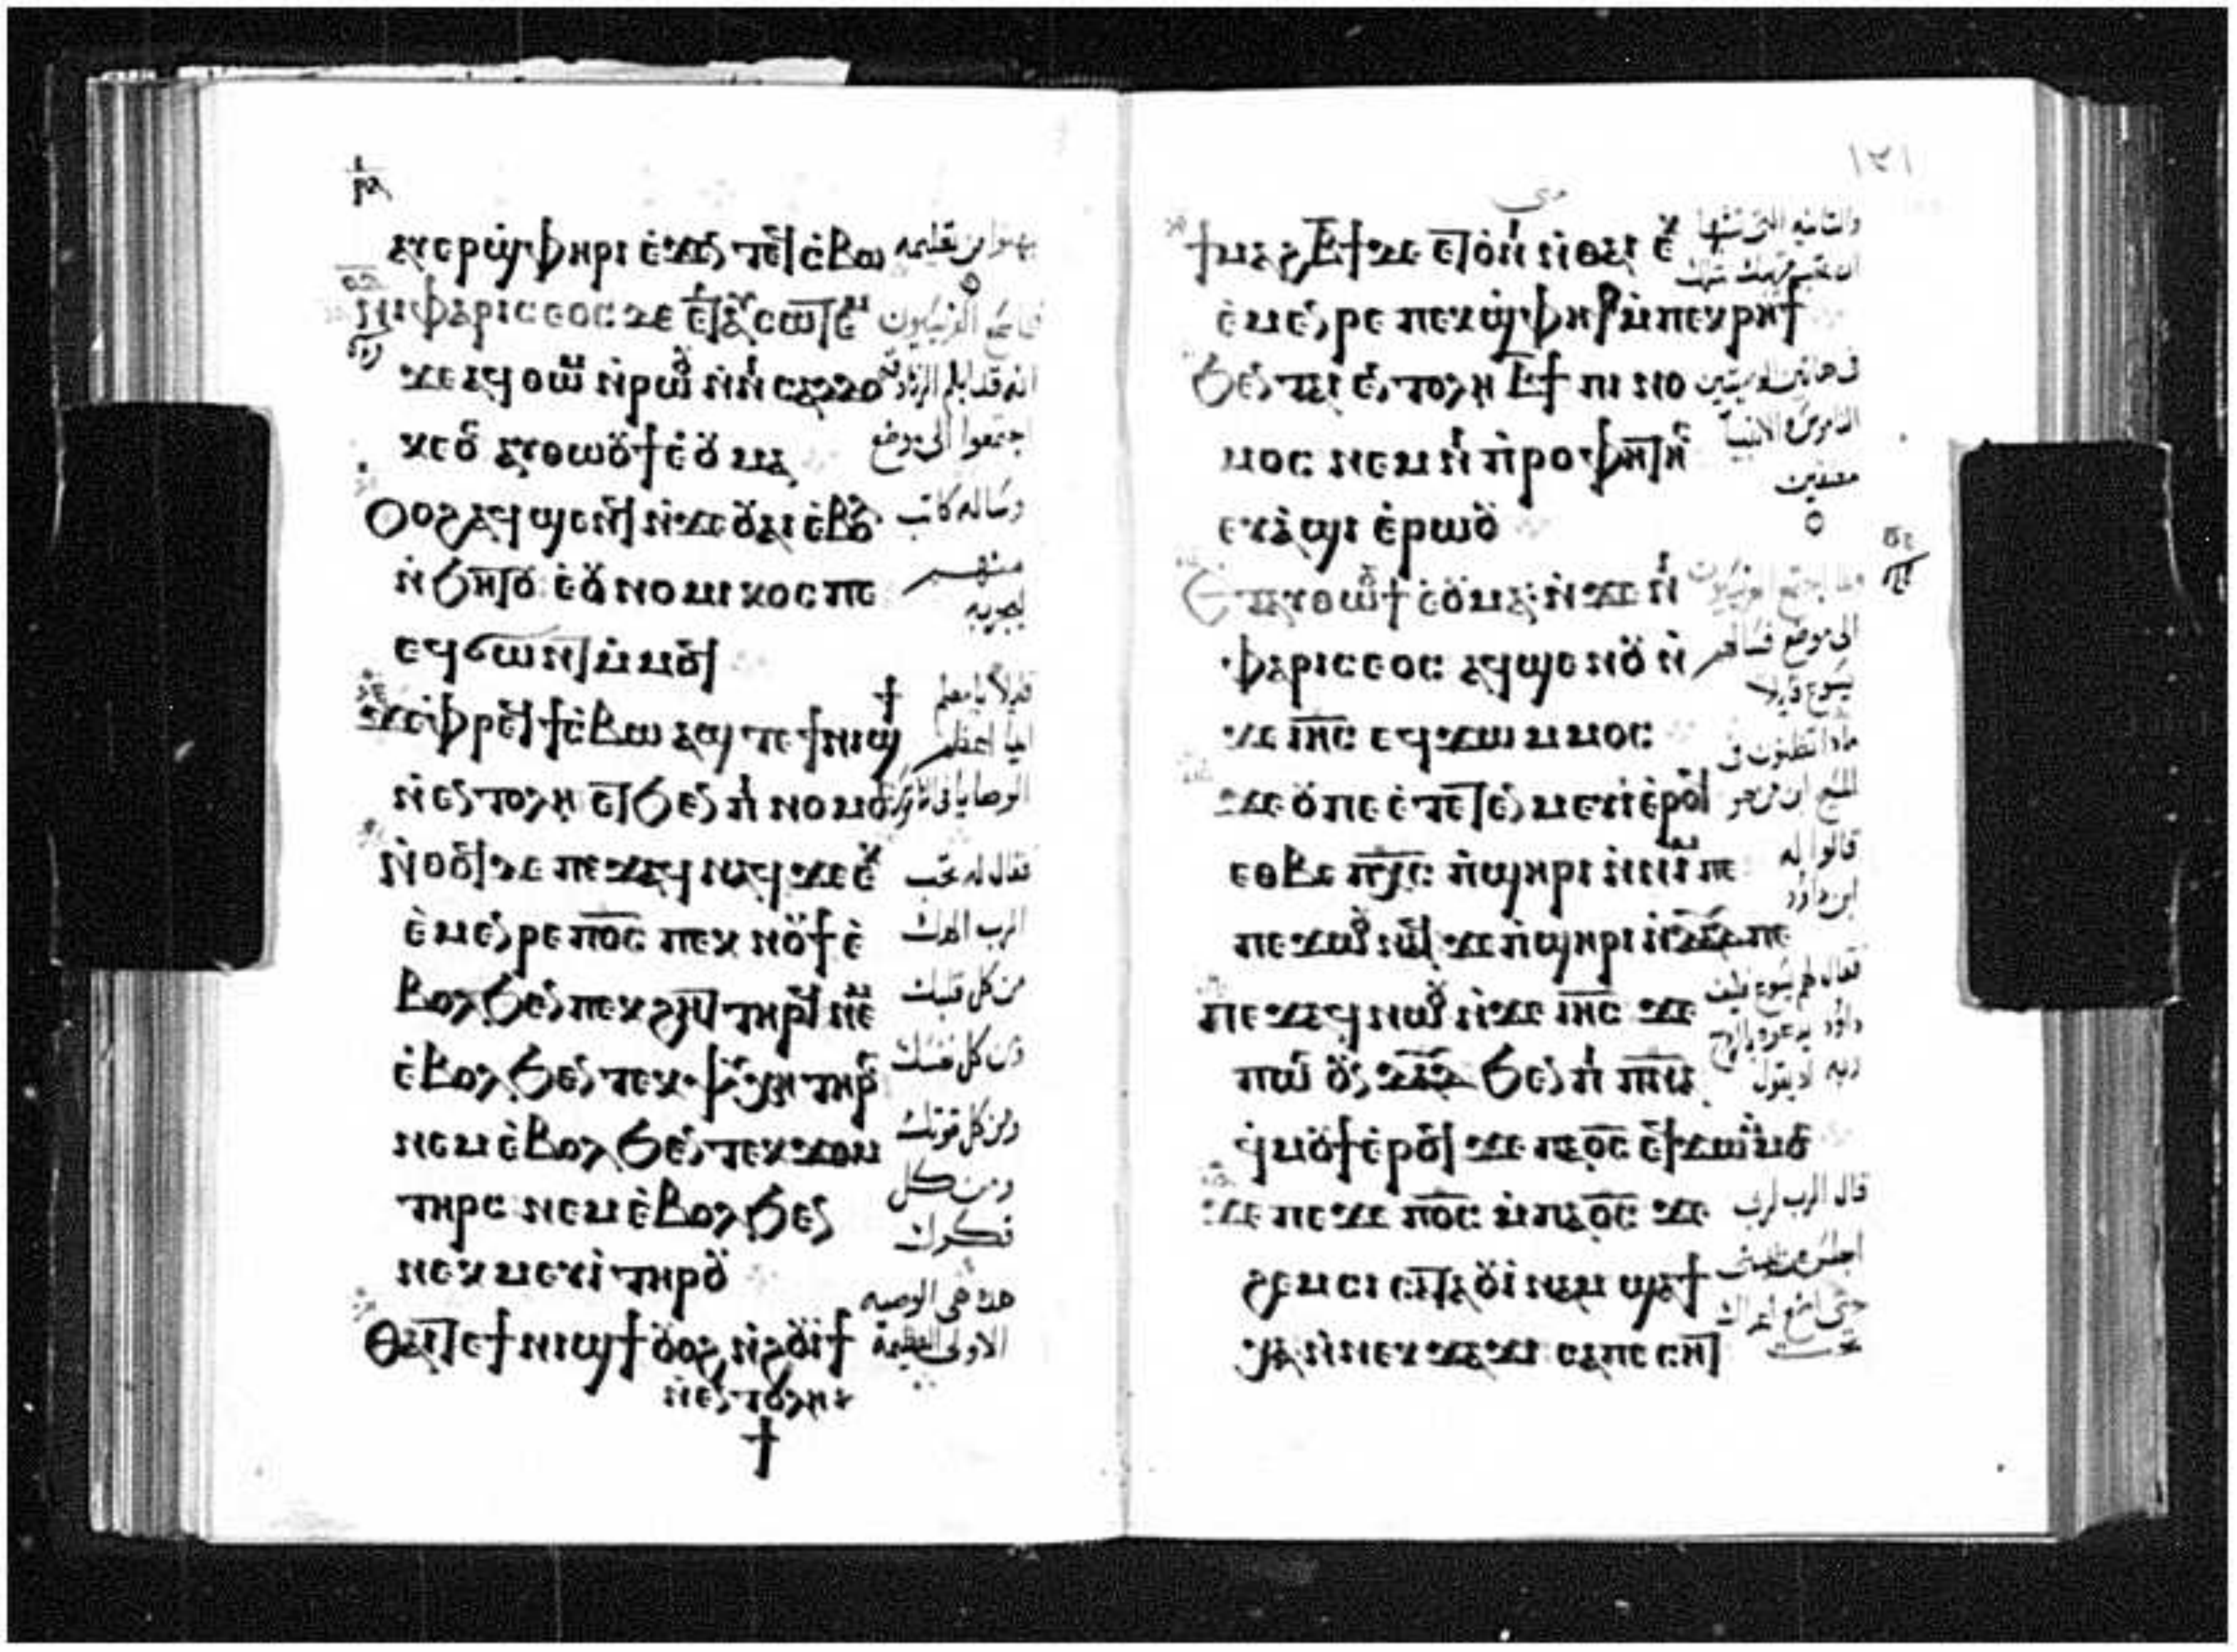 ⲁⲩⲉⲣϣⲫⲏⲣⲓ ⲉϫⲉⲛ ⲧⲉϥⲥⲃⲱ
ⲛⲓⲫⲁⲣⲓⲥⲉⲟⲥ ⲇⲉ ⲉⲧⲁⲩⲥⲱⲧⲉⲙ
ϫⲉ ⲁϥⲑⲱⲙ ⲛⲣⲱⲟⲩ ⲛⲛⲓⲥⲁⲇⲇⲟ
ⲕⲉⲟⲥ ⲁⲩⲑⲱⲟⲩϯ ⲉⲟⲩⲙⲁ
ⲟⲩⲟϩ ⲁϥϣⲉⲛϥ ⲛϫⲉ ⲟⲩⲁⲓ ⲉⲃⲟⲗ
ⲛϧⲏⲧⲟⲩ ⲉⲟⲩⲛⲟⲙⲓⲕⲟⲥ ⲡⲉ
ⲉϥϭⲱⲛⲧ ⲙⲙⲟϥ
ϫⲉ ⲫⲣⲉϥϯⲥⲃⲱ ⲁϣ ⲧⲉ ϯⲛⲓϣϯ
ⲛⲉⲛⲧⲟⲗⲏ ⲉⲧϧⲉⲛ ⲡⲓⲛⲟⲙⲟⲥ
ⲛⲑⲟϥ ⲇⲉ ⲡⲉϫⲁϥ ⲛⲁϥ ϫⲉ ⲉⲕⲉ
ⲉⲙⲉⲛⲣⲉ ⲡⲟ̅ⲥ̅ ⲡⲉⲕⲛⲟⲩϯ ⲉ
ⲃⲟⲗ ϧⲉⲛ ⲡⲉⲕϩⲏⲧ ⲧⲏⲣϥ ⲛⲉⲙ
ⲉⲃⲟⲗ ϧⲉⲛ ⲧⲉⲕⲯⲩⲭⲏ ⲧⲏⲣⲥ
ⲛⲉⲙ ⲉⲃⲟⲗ ϧⲉⲛ ⲧⲉⲕϫⲟⲙ
ⲧⲏⲣⲥ ⲛⲉⲙ ⲉⲃⲟⲗ ϧⲉⲛ
ⲛⲉⲕⲙⲉⲩⲓ ⲧⲏⲣⲟⲩ
ⲑⲁⲓ ⲧⲉ ϯⲛⲓϣϯ ⲟⲩⲟϩ ⲛϩⲟⲩⲓϯ
ⲛⲉⲛⲧⲟⲗⲏ
بهتوا من تعليمه
فلما سمع الفريسيون
انه قد ابكم الزنادقه
اجتمعوا الى موضع
وساله كاتب
منهم
ليجربه
قايلا يا معلم
ايما اعظم
الوصايا فى الناموس
فقال له تحب
الرب الهك
من كل قلبك
ومن كل نفسك
ومن كل قوتك
ومن كل
فكرك
هذه هى الوصيه
الاولى العظيمة
متى
ϯⲙⲁϩⲃ̅ϯ ⲇⲉ ⲉⲧⲟⲛⲓ ⲛⲑⲁⲓ ⲉⲕⲉ
ⲉⲙⲉⲛⲣⲉ ⲡⲉⲕϣⲫⲏⲣ ⲙⲡⲉⲕⲣⲏϯ
ϧⲉⲛ ⲧⲁⲓ ⲉⲛⲧⲟⲗⲏ ⲃ̅ϯ ⲡⲓⲛⲟ
ⲙⲟⲥ ⲛⲉⲙ ⲛⲓⲡⲣⲟⲫⲏⲧⲏⲥ
ⲉⲩⲁϣⲓ ⲉⲣⲱⲟⲩ
ⲉⲧⲁⲩⲑⲱⲟⲩϯ ⲉⲟⲩⲙⲁ ⲛϫⲉ ⲛⲓ
ⲫⲁⲣⲓⲥⲉⲟⲥ ⲁϥϣⲉⲛⲟⲩ ⲛ
ϫⲉ ⲓⲏ̅ⲥ̅ ⲉϥϫⲱ ⲙⲙⲟⲥ
ϫⲉ ⲟⲩ ⲡⲉⲧⲉⲧⲉⲛⲙⲉⲩⲓ ⲉⲣⲟϥ
ⲉⲑⲃⲉ ⲡⲭ̅ⲥ̅ ⲡϣⲏⲣⲓ ⲛⲛⲓⲙ ⲡⲉ
ⲡⲉϫⲱⲟⲩ ⲛⲁϥ ϫⲉ ⲡϣⲏⲣⲓ ⲛⲇⲁ̅ⲇ̅ ⲡⲉ
ⲡⲉϫⲁϥ ⲛⲱⲟⲩ ⲛϫⲉ ⲓⲏ̅ⲥ̅ ϫⲉ
ⲡⲱⲥ ⲟⲩⲛ ⲇⲁ̅ⲇ̅ ϧⲉⲛ ⲡⲓⲡ̅ⲛ̅ⲁ̅
ϥⲙⲟⲩϯ ⲉⲣⲟϥ ϫⲉ ⲡⲁⲟ̅ⲥ̅ ⲉϥϫⲱ ⲙⲙⲟⲥ
ϫⲉ ⲡⲉϫⲉ ⲡⲟ̅ⲥ̅ ⲙⲡⲁⲟ̅ⲥ̅ ϫⲉ
ϩⲉⲙⲥⲓ ⲥⲁⲧⲁⲟⲩⲓⲛⲁⲙ ϣⲁϯ
ⲭⲁ ⲛⲛⲉⲕϫⲁϫⲓ ⲥⲁⲡⲉⲥⲏⲧ
والثانيه التى تشبهها
ان تحب قريبك مثلك
فى هاتين الوصيتين
الناموس والانبيا
متعلقين
الى موضع فسالهم
يسوع قايلا
ماذا تظنون فى
المسيح ابن من هو
قالوا له
ابن داود
فقال لهم يسوع كيف
داود يدعوه بالروح
ربه اذ يقول
قال الرب لربى
اجلس عن يمينى
حتى اضع اعداك
تحت